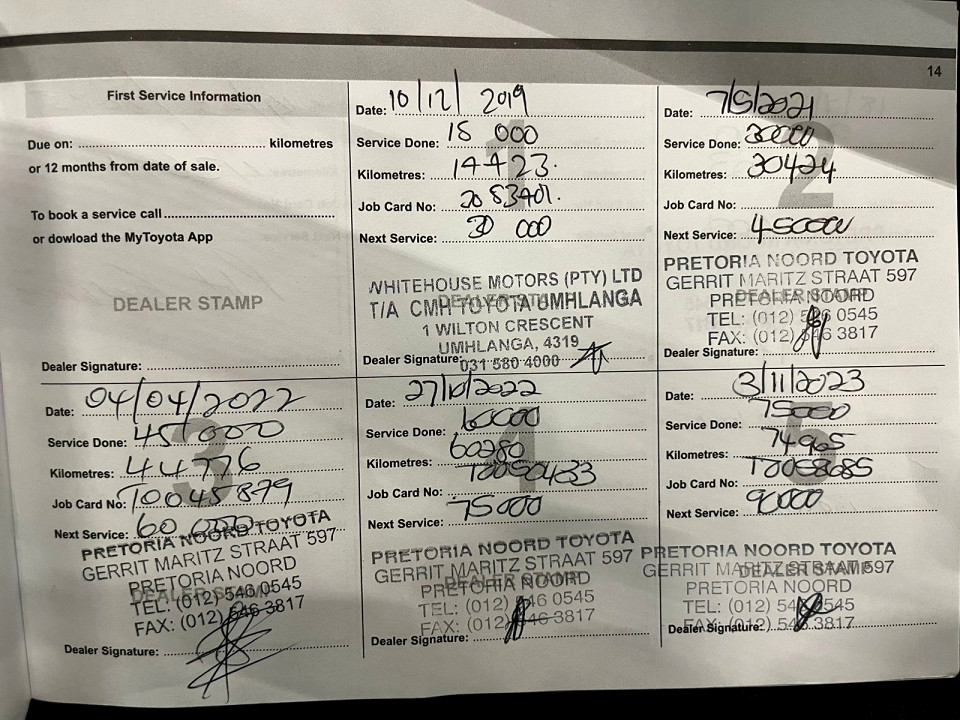 14
First Service Information
Due on: kilometres
or 12 months from date of sale.
To book a service call
or dowload the MyToyota App
DEALER STAMP
Dealer Signature:
1
Date: 10/12/2019
Service Done: 15 000
Kilometres: 14423.
Job Card No: 2083401.
Next Service: 30 000
DEALER STAMP
WHITEHOUSE MOTORS (PTY) LTD
T/A CMH TOYOTA UMHLANGA
1 WILTON CRESCENT
UMHLANGA, 4319
031 580 4000
Dealer Signature:
2
Date: 7/5/2021
Service Done: 30000
Kilometres: 30424
Job Card No:
Next Service: 45000
DEALER STAMP
PRETORIA NOORD TOYOTA
GERRIT MARITZ STRAAT 597
PRETORIA NOORD
TEL: (012) 546 0545
FAX: (012) 546 3817
Dealer Signature:
3
Date: 04/04/2022
Service Done: 45 000
Kilometres: 44776
Job Card No: T0045879
Next Service: 60 000
DEALER STAMP
PRETORIA NOORD TOYOTA
GERRIT MARITZ STRAAT 597
PRETORIA NOORD
TEL: (012) 546 0545
FAX: (012) 546 3817
Dealer Signature:
4
Date: 27/10/2022
Service Done: 60000
Kilometres: 60280
Job Card No: T0050433
Next Service: 75000
DEALER STAMP
PRETORIA NOORD TOYOTA
GERRIT MARITZ STRAAT 597
PRETORIA NOORD
TEL: (012) 546 0545
FAX: (012) 546 3817
Dealer Signature:
5
Date: 3/11/2023
Service Done: 75000
Kilometres: 74965
Job Card No: T0058685
Next Service: 90000
DEALER STAMP
PRETORIA NOORD TOYOTA
GERRIT MARITZ STRAAT 597
PRETORIA NOORD
TEL: (012) 546 0545
FAX: (012) 546 3817
Dealer Signature: